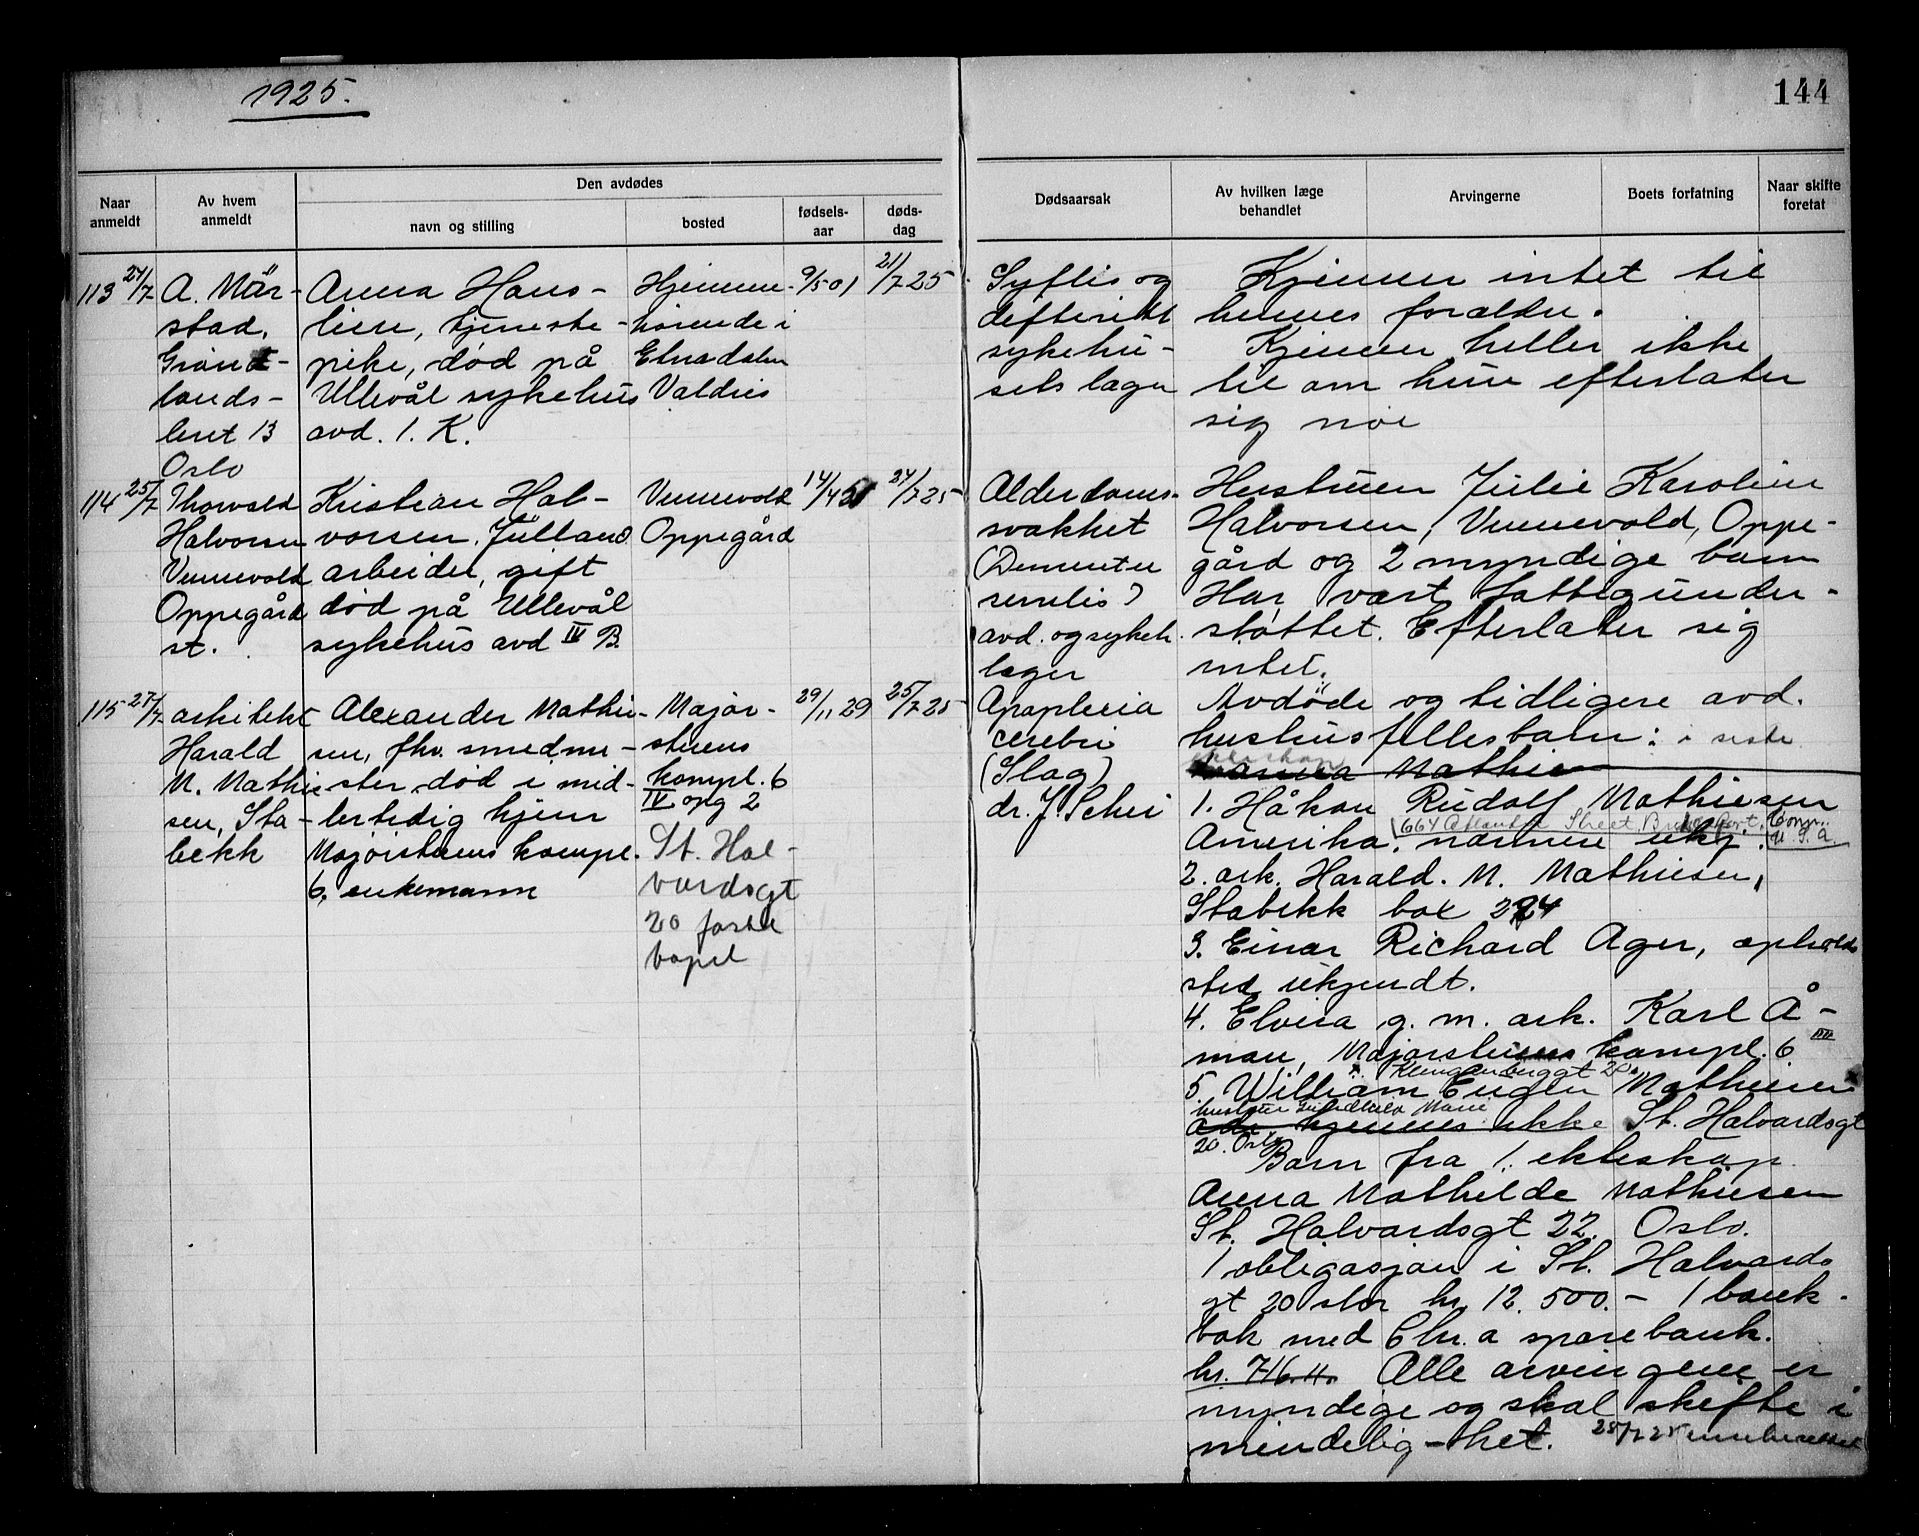 1925.
144
Naar anmeldt
Av hvem anmeldt
Den avdødes
navn og stilling
bosted
fødsels-aar
døds-dag
Dødsaarsak
Av hvilken læge behandlet
Arvingerne
Boets forfatning
Naar skifte foretat
113 24/7
A. Mär-
stad,
Grønt-
lands-
leret 13
Oslo
Anna Hans-
lien, tjeneste-
pike, død på
Ullevål sykehus
avd. 1. K.
Hjemme-
hørende i
Etnadalen
Valdres
9/5 01
21/7 25
Syflis og
defterit
sykehu-
sets læger
Kjenner intet til
hennes foreldre.
Kjenner heller ikke
til om hun efterlater
sig noe
114 25/7
Thorvald
Halvorsen
Vennevold
Oppegård
st.
Kristian Hal-
vorsen
arbeider, gift
død på Ullevål
sykehus avd IV B.
Vennevold
Oppegård
14/4 51
24/7 25
Alderdoms-
svakhet
(Dementia
senilis)
avd. og sykeh.
læger
Hustruen Julie Karoline
Halvorsen, Vennevold, Oppe-
gård og 2 myndige barn
Har vært fattigunder-
støttet. Efterlater sig
intet.
115 27/7
arkitekt
Harald
M. Mathie-
sen, Sta-
bekk
Alexander Mathie-
sen, fhv. smedme-
ster, død i mid-
lertidig hjem
Majorstuens kompl.
6, enkemann
Major-
stuens
kompl. 6
IV opg 2
St. Hal-
vardsgt
20 faste
bopel
29/11 29
25/7 25
Apoplexia
cerebri
(Slag)
dr. J. Schei
Avdøde og tidligere avd.
hustrus fellesbarn: i siste
ekteskap
Anna Mathie
1. Håkon Rudolf Mathiesen
664 Atlantic Street, Bridgeport, Conn. U.S.A.
Amerika, nærmere ukj.
2. ark. Harald. M. Mathiesen,
Stabekk box 224
3. Einar Richard Ager, opholds
sted ukjendt.
4. Elvira g. m. ark. Karl Å-
man, Majorstuens kompl. 6 III
5. William Eugen Mathiesen
ikke St. Halvardsgt
20. Oslo
Barn fra 1. ekteskap
Anna Mathilde Mathiesen
St. Halvardsgt 22. Oslo.
1 obligasjon i St. Halvards
gt 20 stor kr. 12.500.- 1 bank-
bok med Chr.a sparebank.
kr. 716.11. Alle arvingene er
myndige og skal skifte i
mindelig-het. 28/7 25 innberettet